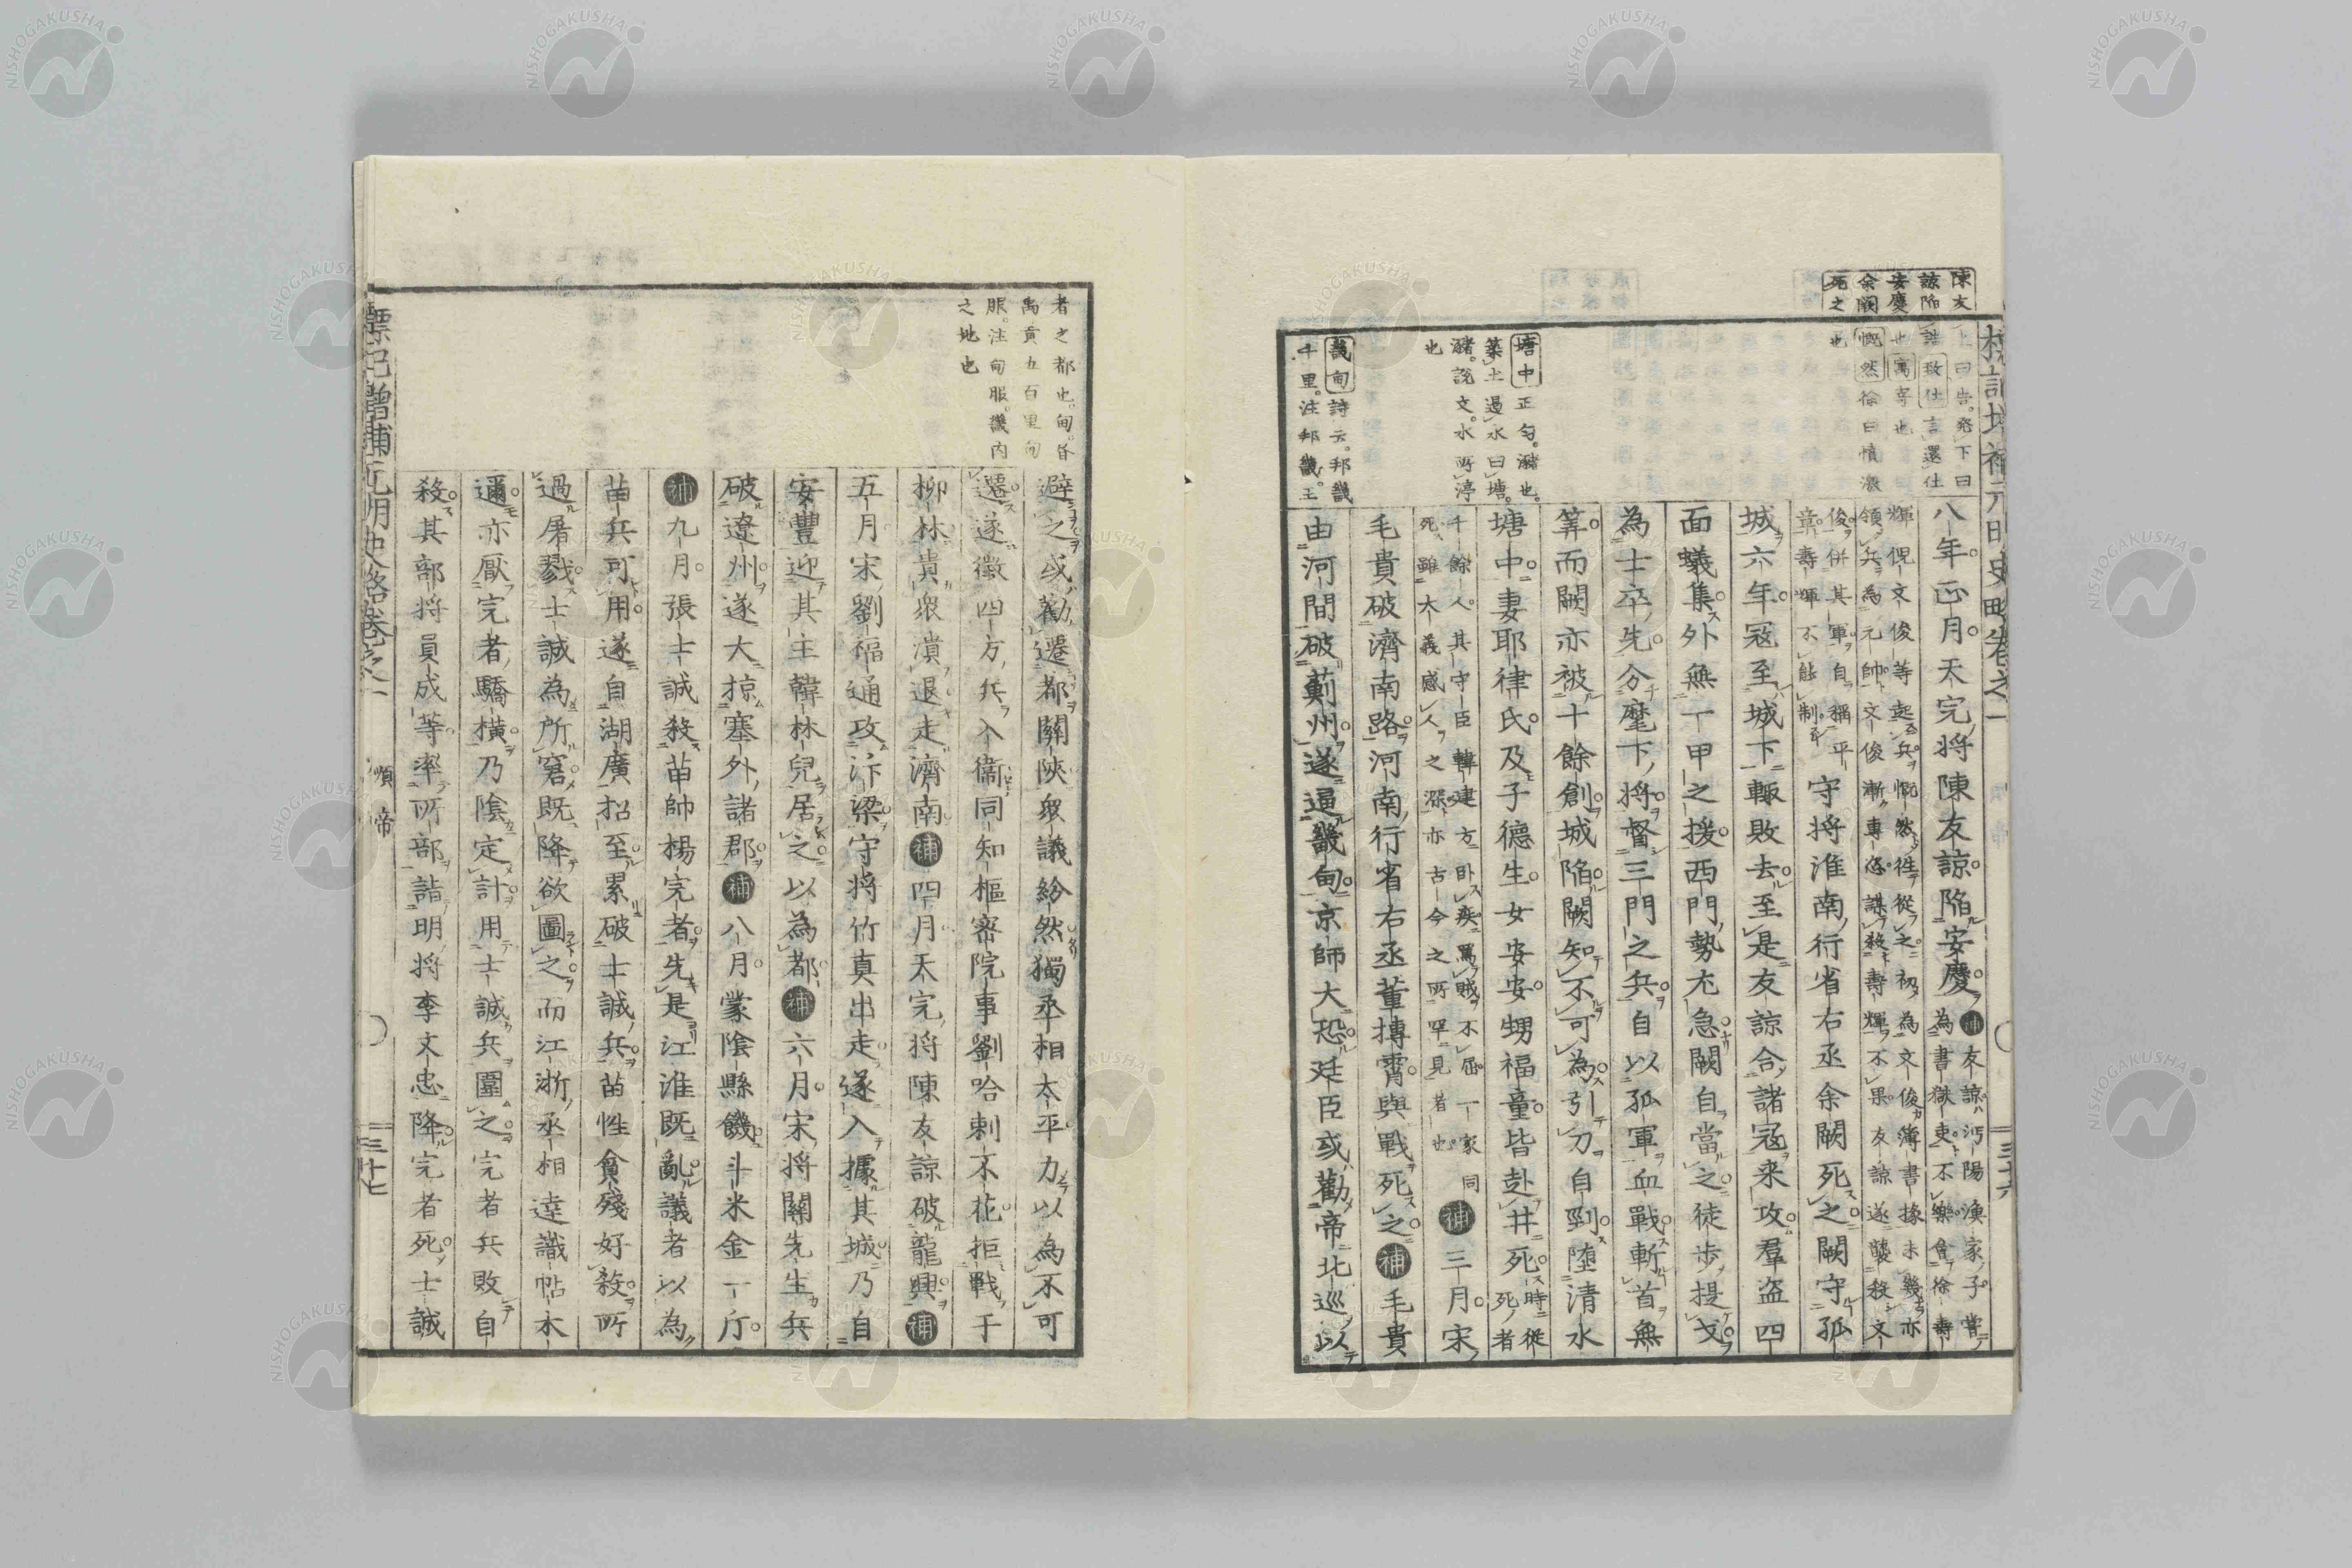 標記增補元明史略卷之一
陳友
諒陥
安慶
余闕
死之
上曰告。発下曰
誥致仕言還仕
也寓寄也
慨然徐曰憤激
也
塘中正匀。瀦也。
築土遏水曰塘。
瀦。說文。水所渟
也
畿甸詩云。邦畿
千里。注邦畿。王
八年。正月。天完将陳友諒。陥安慶。補友諒沔陽漁家子。嘗
為書獄吏。不樂會徐壽
輝倪文俊等起兵。慨然徃從之。初為文俊簿書掾。未幾亦
領兵為元帥。文俊漸專恣。謀殺壽輝不果。友諒遂襲殺文
俊。併其軍。自稱平
章。壽輝不能制。守将淮南行省右丞余闕死之。闕守孤
城六年。冦至城下輙敗去。至是友諒合諸冦来攻。羣盗四
面蟻集。外無一甲之援。西門勢尤急。闕自當之。徒歩提戈
為士卒先。分麾下将督三門之兵。自以孤軍血戰。斬首無
筭。而闕亦被十餘創。城陥。闕知不可為。引刀自剄。墮清水
塘中。妻耶律氏。及子德生。女安安。甥福童。皆赴井死。時從
死者
千餘人。其守臣韓建方卧疾。罵賊不屈。一家同
死。雖大義感人之深。亦古今之所罕見者也。補三月。宋
毛貴破濟南路。河南行省右丞董摶霄與戰死之。補毛貴
由河間破薊州。遂逼畿甸。京師大恐。廷臣或勸帝北巡以
三十六
者之都也。甸。
禹貢五百里甸
服。注甸服。畿内
之地也
避之。或勸遷都關陜。衆議紛然。獨丞相太平力以為不可
遷。遂徴四方兵入衞。同知樞密院事劉哈剌不花。拒戰于
柳林。貴衆潰。退走濟南。補四月。天完将陳友諒破龍興。補
五月。宋劉福通攻汴梁。守将竹真出走。遂入據其城。乃自
安豐迎其主韓林兒居之。以為都。補六月。宋将關先生兵
破遼州。遂大掠塞外諸郡。補八月。蒙陰縣饑。斗米金一斤。
補九月。張士誠殺苗帥楊完者。先是江淮既亂。議者以為
苗兵可用。遂自湖廣招至。累破士誠兵。苗性貪殘好殺。所
過屠戮。士誠為所窘。既降欲圖之。而江浙丞相達識帖木
邇。亦厭完者驕橫。乃陰定計。用士誠兵圍之。完者兵敗自
殺。其部将員成等。率所部詣明将李文忠降。完者死。士誠
標記增補元明史略卷之一
順帝
三十七